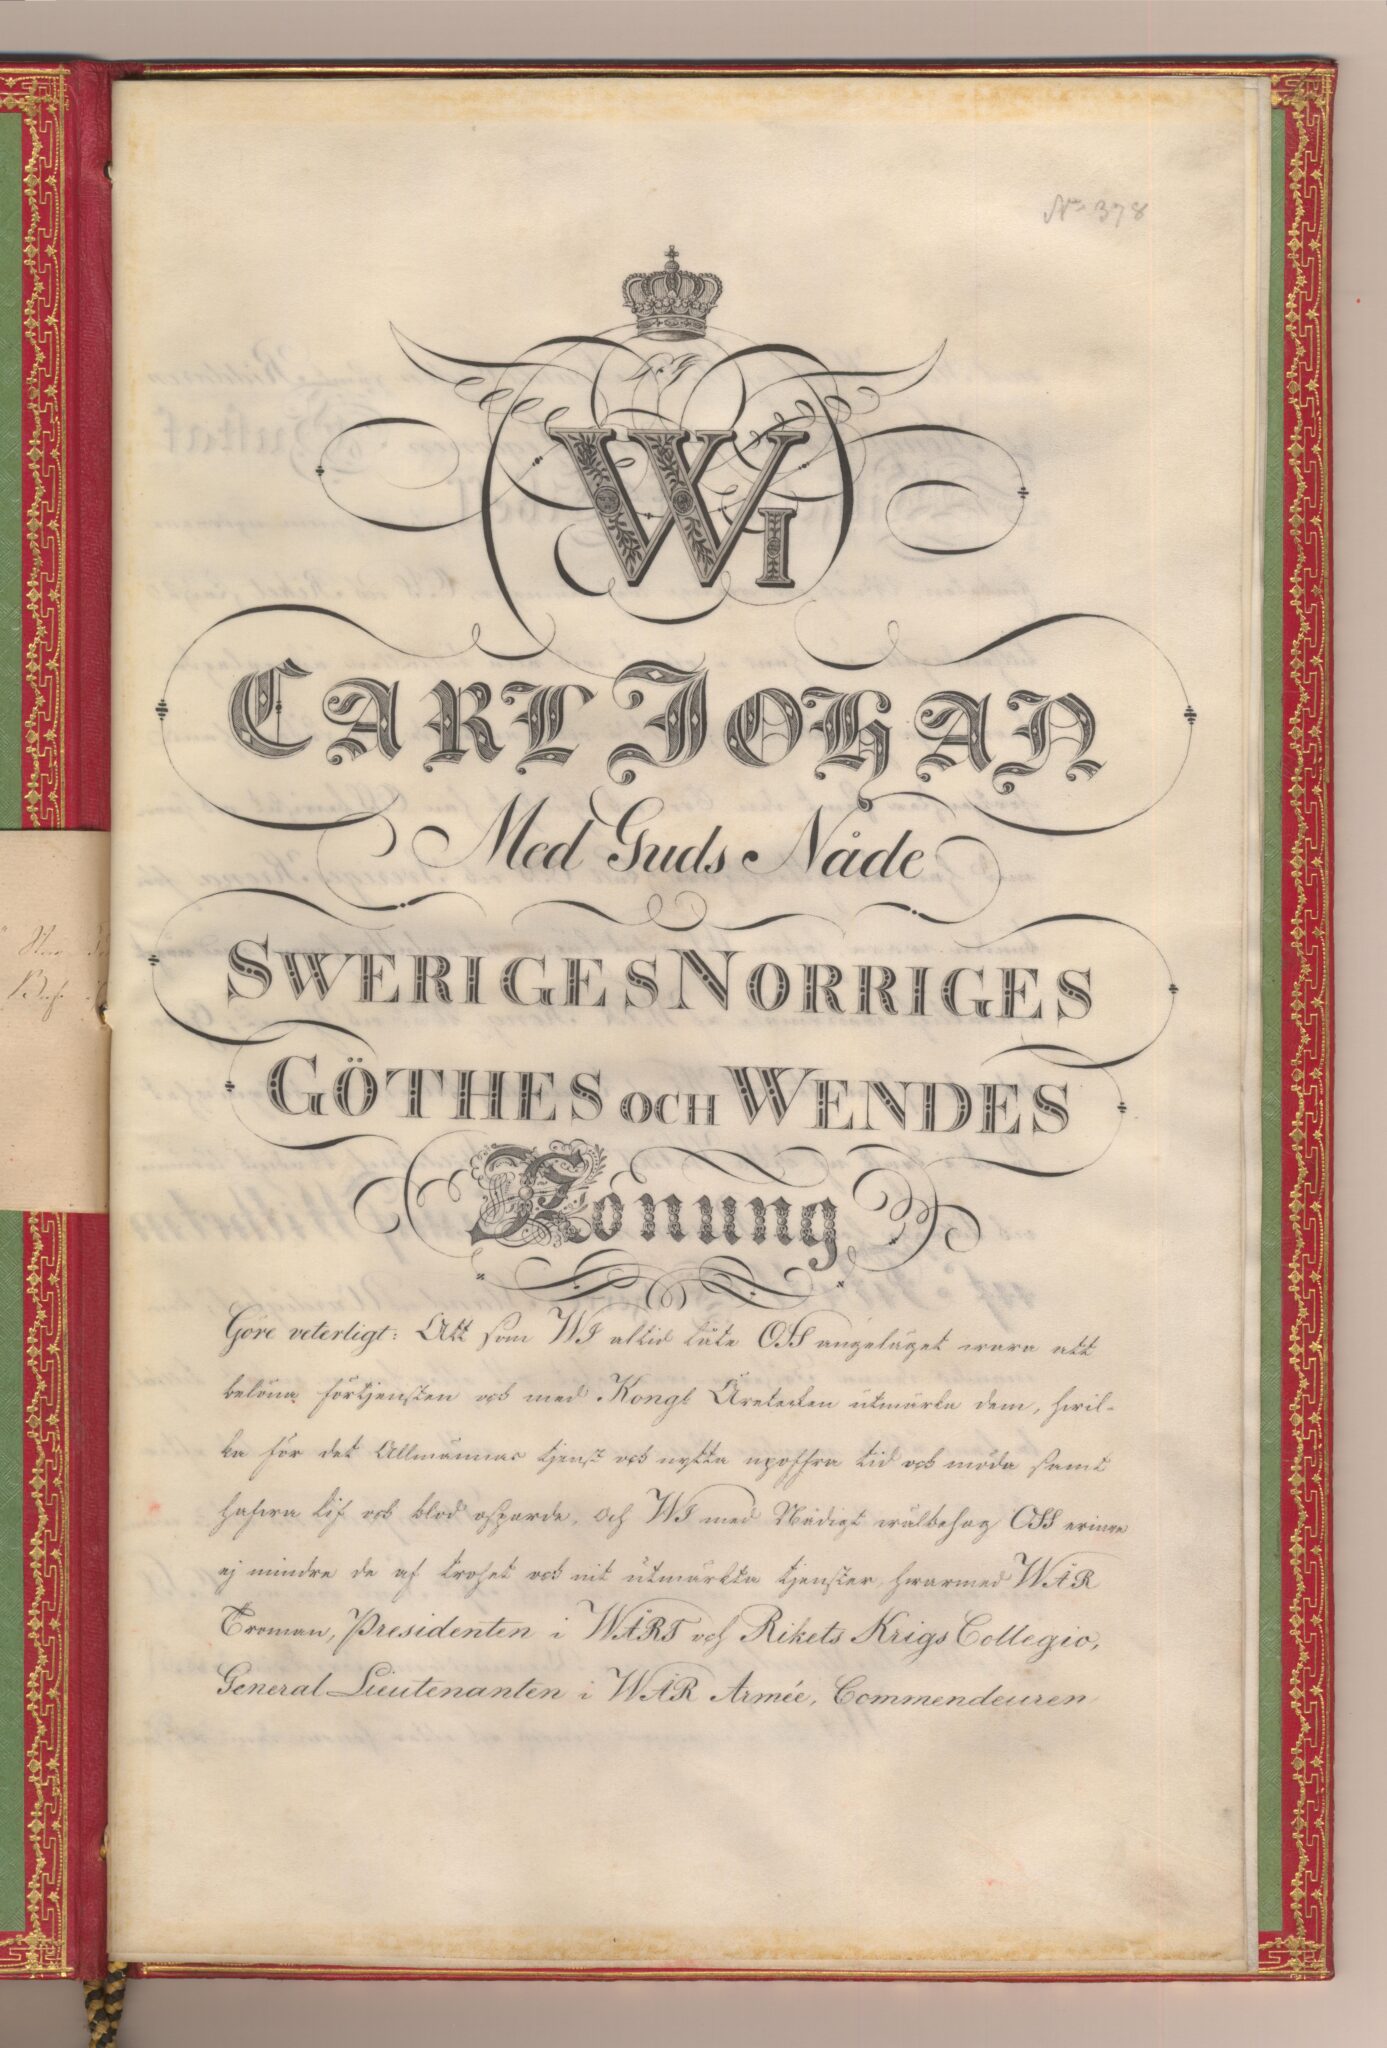 No 378
WI
CARL JOHAN
Med Guds Nåde
SWERIGES NORRIGES
GÖTHES OCH WENDES
Konung
Göre veterligt: Att som WI altid låte OSS angeläget wara att
belöna förtjensten och med Kongl Äretecken utmärka dem, hwil-
ka för det Allmännas tjenst och nytta upoffra tid och möda samt
hafwa lif och blod osparde, Och WI med Nådigt wälbehag OSS erinre
ej mindre de af trohet och nit utmärkta tjenster, hwarmed WÅR
Troman, Presidenten i WÅRT och Rikets Krigs Collegio,
General Lieutenanten i WÅR Armée, Commendeuren